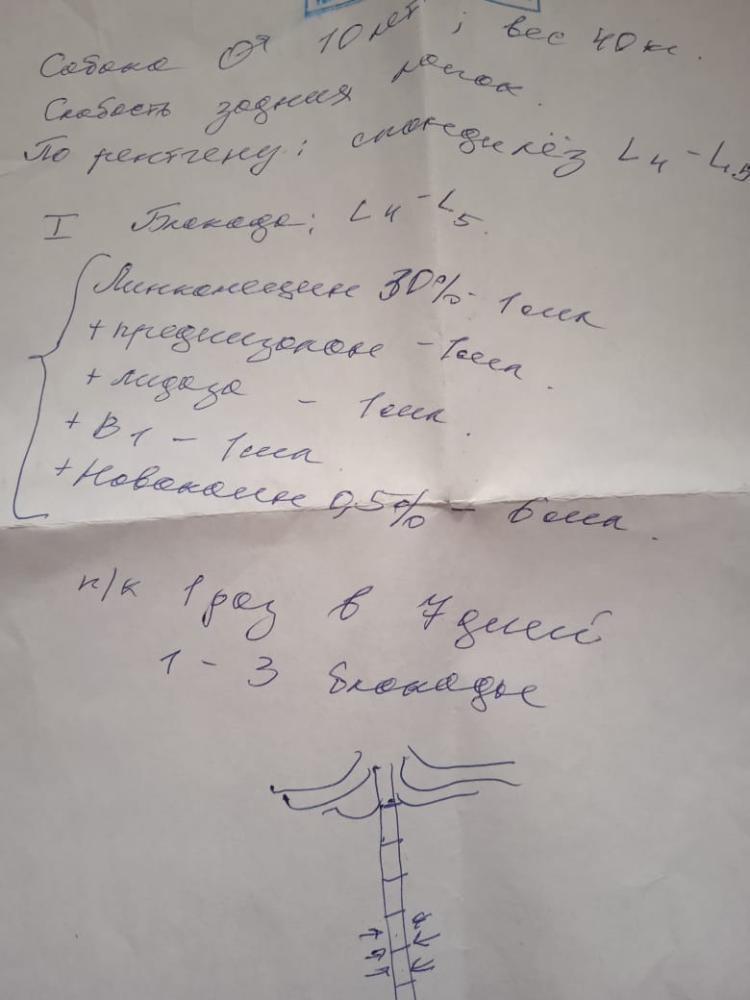 Собака ♂ 10 лет ; вес 40 кг.
Слабость задних лапок.
По рентгену: спондилёз L4 - L5
I Блокада: L4 - L5.
Линкомецин 30% - 1 мл
+ преднизолон - 1 мл.
+ лидаза - 1 мл.
+ В1 - 1 мл
+ Новокаин 0,5% - 6 мл.
п/к 1 раз в 7 дней
1 - 3 блокады